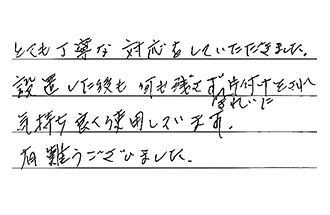 とても丁寧な対応をしていただきました。
設置した後も何も残さずきれいに片付けをされ
気持ち良く使用しています。
有難うございました。